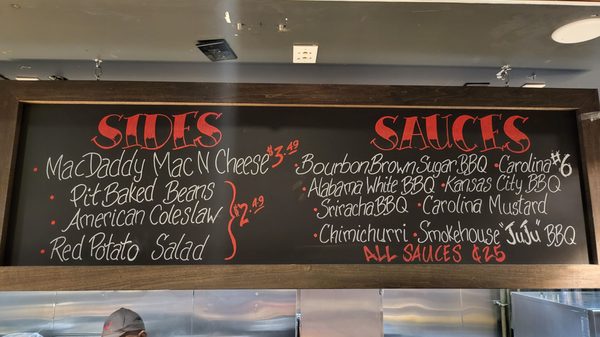 SIDES
• MacDaddy Mac N Cheese $3.49
• Pit Baked Beans
• American Coleslaw
$2.49
• Red Potato Salad
SAUCES
• Bourbon Brown Sugar BBQ • Carolina #6
• Alabama White BBQ • Kansas City BBQ
• Sriracha BBQ • Carolina Mustard
• Chimichurri • Smokehouse "JuJu" BBQ
ALL SAUCES ¢25